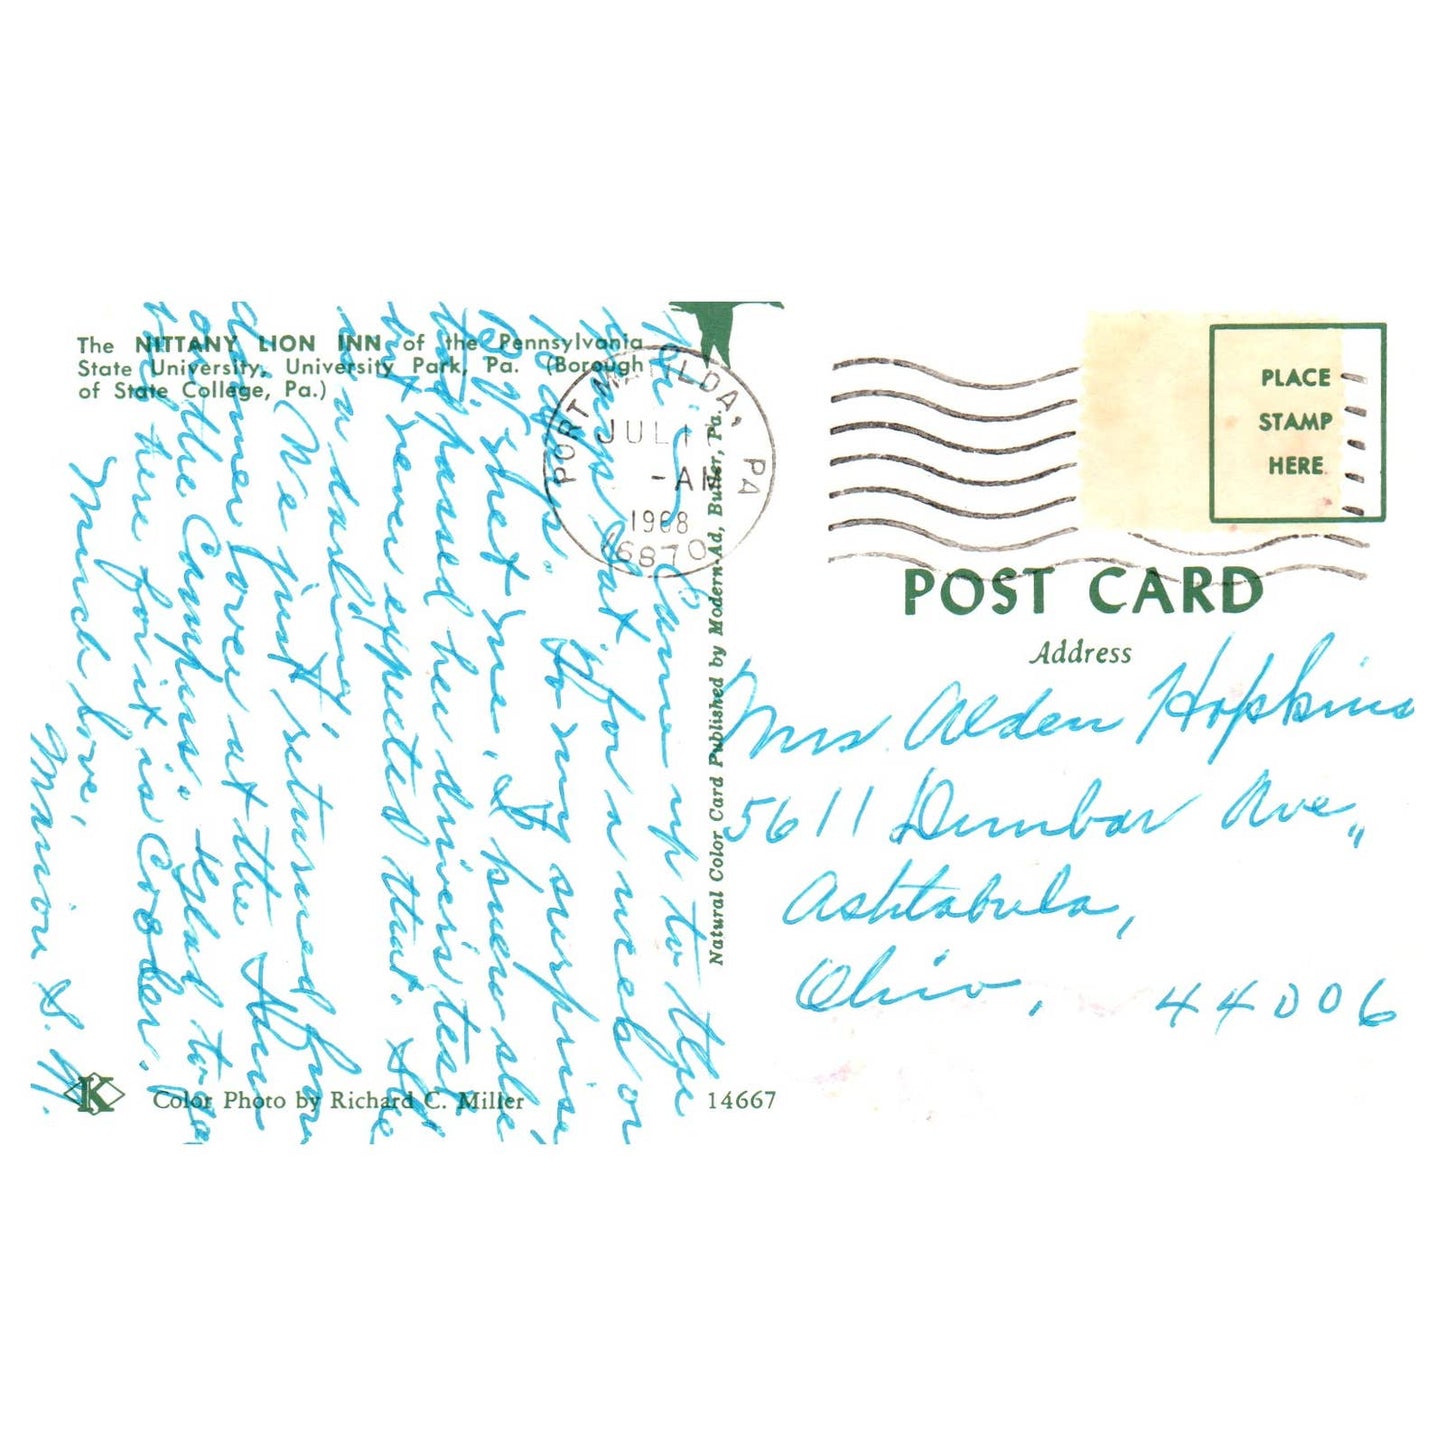 The NITTANY LION INN of the Pennsylvania
State University, University Park, Pa. (Borough
of State College, Pa.)
PORT MATILDA, PA
JUL
-AM
1968
16870
PLACE
STAMP
HERE
POST CARD
Address
Mrs. Alden Hopkins
5611 Dunbar Ave.,
Ashtabula,
Ohio, 44006
Came up to the
for a week or
10 days. To my surprise
shet me, I knew she
had passed her driver's test
but never expected that. She
is a darling
We just returned from
dinner over at the Inn
on the Campus. Glad to be
here for it is Cooler.
Much love,
Marion S. H.
Natural Color Card Published by Modern-Ad, Butler, Pa.
K
Color Photo by Richard C. Miller
14667